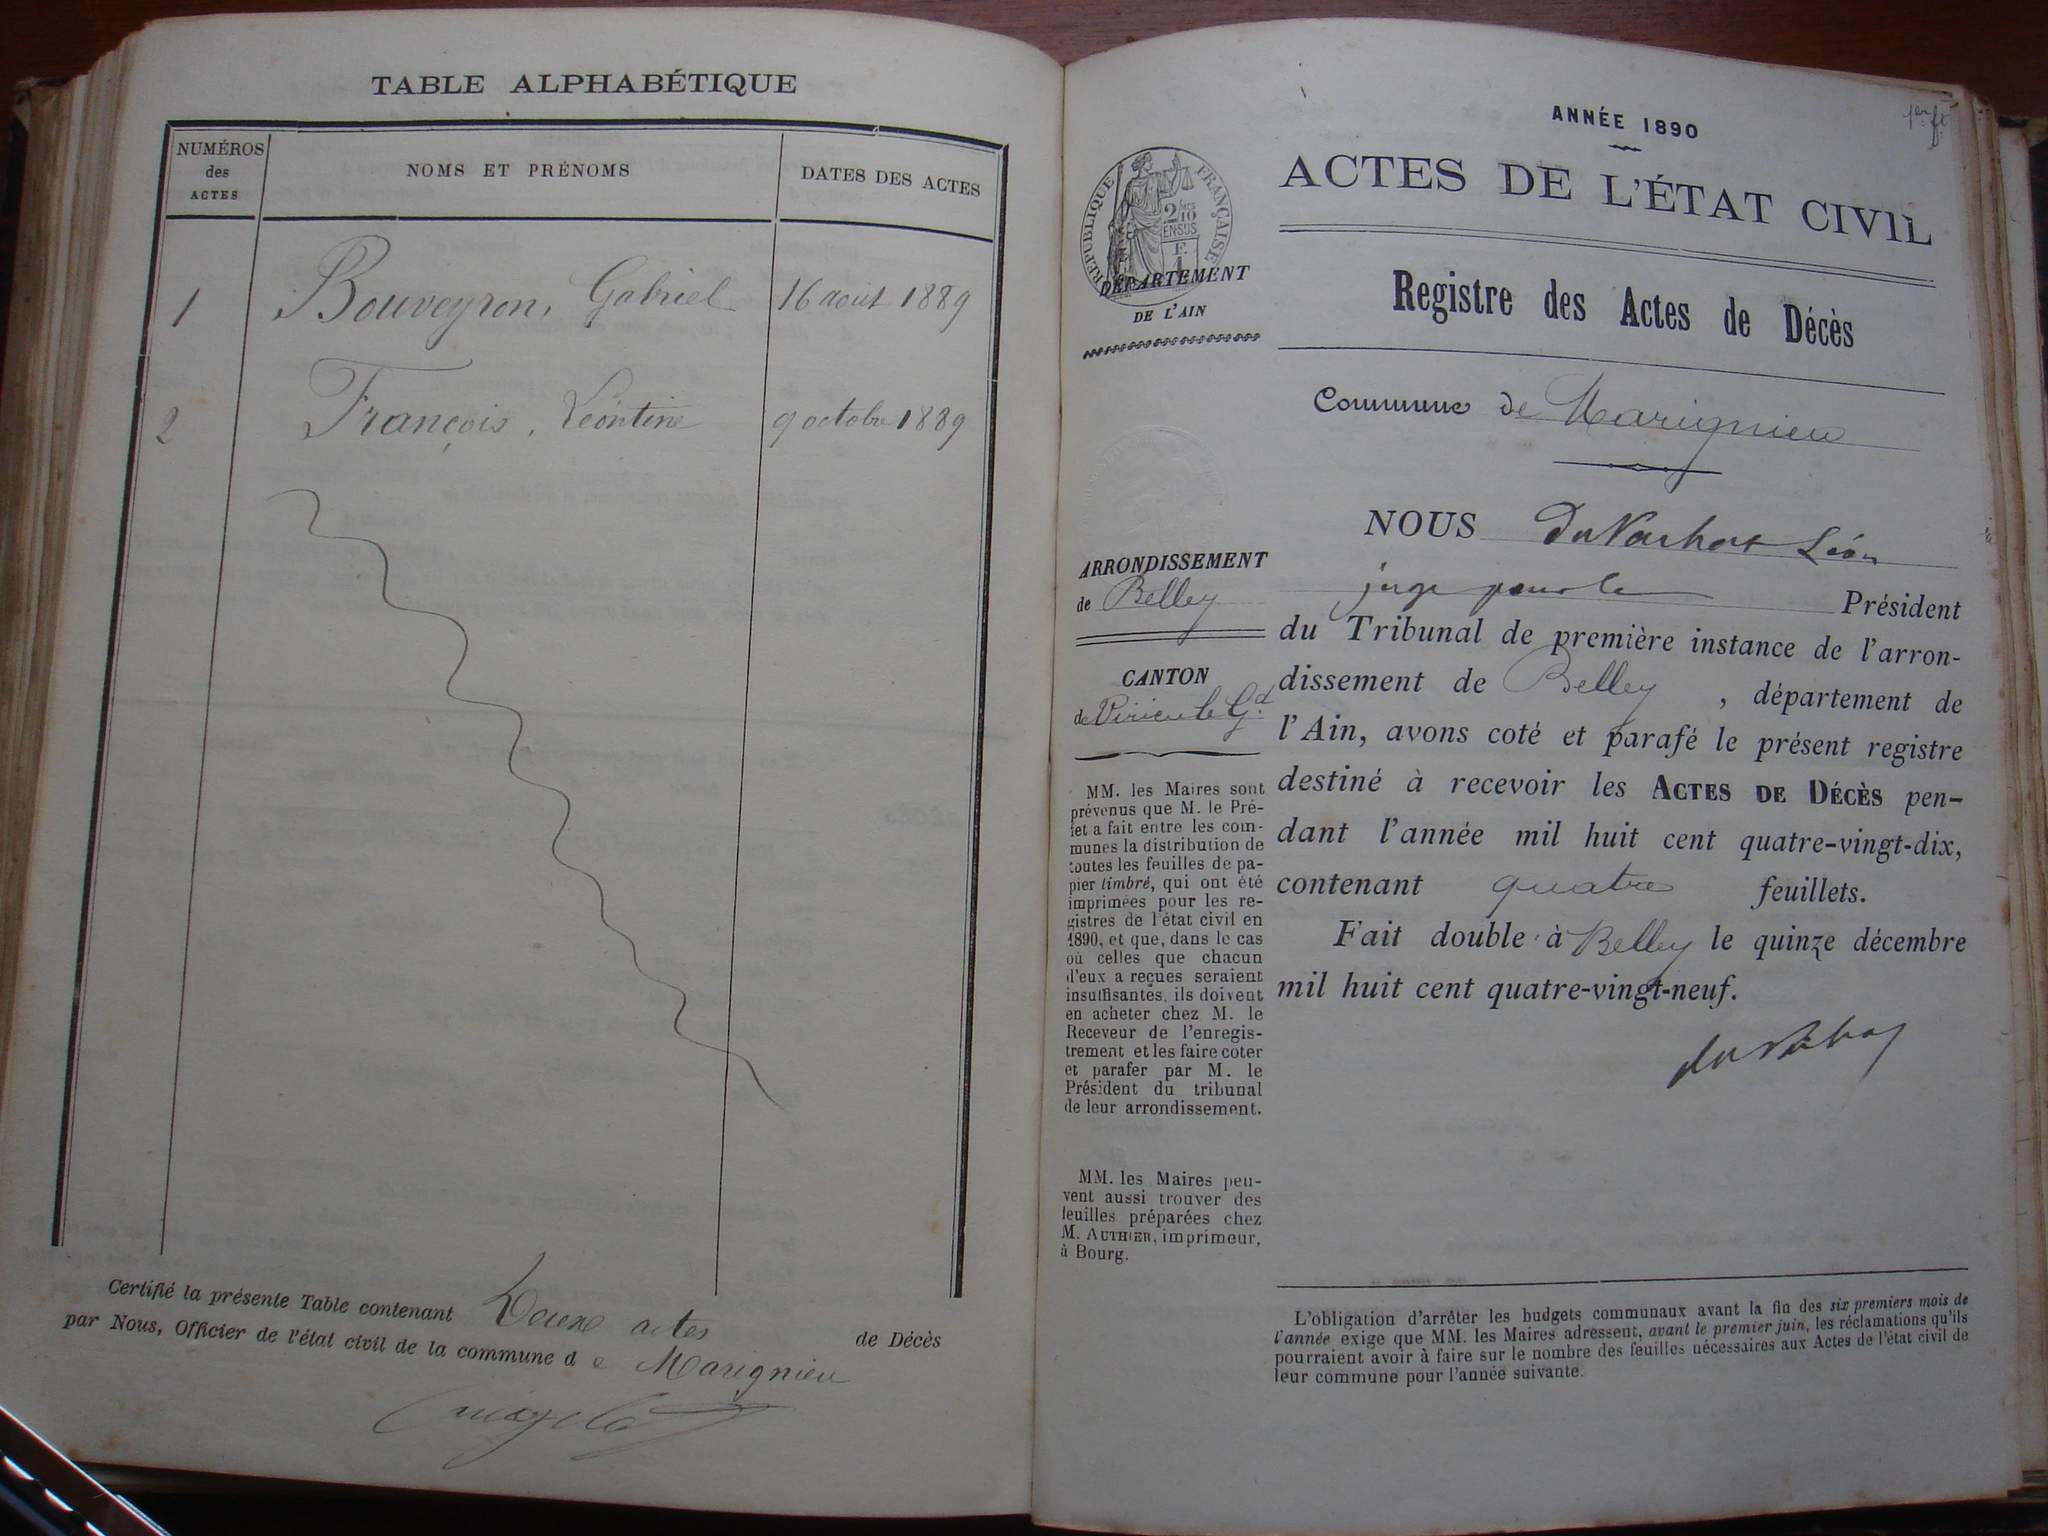 TABLE ALPHABÉTIQUE
NUMÉROS
des
ACTES
NOMS ET PRÉNOMS
DATES DES ACTES
1 Bouveyron, Gabriel 16 août 1889
2 François, Léontine 9 octobre 1889
Certifié la présente Table contenant Deux actes de Décès
par Nous, Officier de l'état civil de la commune d e Marignieu
1er ft
ANNÉE 1890
ACTES DE L'ÉTAT CIVIL
RÉPUBLIQUE FRANÇAISE
2/10
EN SUS
DÉPARTEMENT
DE L'AIN
Registre des Actes de Décès
Commune de Marignieu
ARRONDISSEMENT
de Belley
CANTON
de Virieu le Gd
MM. les Maires sont
prévenus que M. le Pré-
fet a fait entre les com-
munes la distribution de
toutes les feuilles de pa-
pier timbré, qui ont été
imprimées pour les re-
gistres de l'état civil en
1890, et que, dans le cas
où celles que chacun
d'eux a reçues seraient
insuffisantes, ils doivent
en acheter chez M. le
Receveur de l'enregis-
trement et les faire coter
et parafer par M. le
Président du tribunal
de leur arrondissement.
MM. les Maires peu-
vent aussi trouver des
feuilles préparées chez
M. AUTHIER, imprimeur,
à Bourg.
NOUS Léon
juge pour le Président
du Tribunal de première instance de l'arron-
dissement de Belley, département de
l'Ain, avons coté et parafé le présent registre
destiné à recevoir les ACTES DE DÉCÈS pen-
dant l'année mil huit cent quatre-vingt-dix,
contenant quatre feuillets.
Fait double à Belley le quinze décembre
mil huit cent quatre-vingt-neuf.
L'obligation d'arrêter les budgets communaux avant la fin des six premiers mois de
l'année exige que MM. les Maires adressent, avant le premier juin, les réclamations qu'ils
pourraient avoir à faire sur le nombre des feuilles nécessaires aux Actes de l'état civil de
leur commune pour l'année suivante.